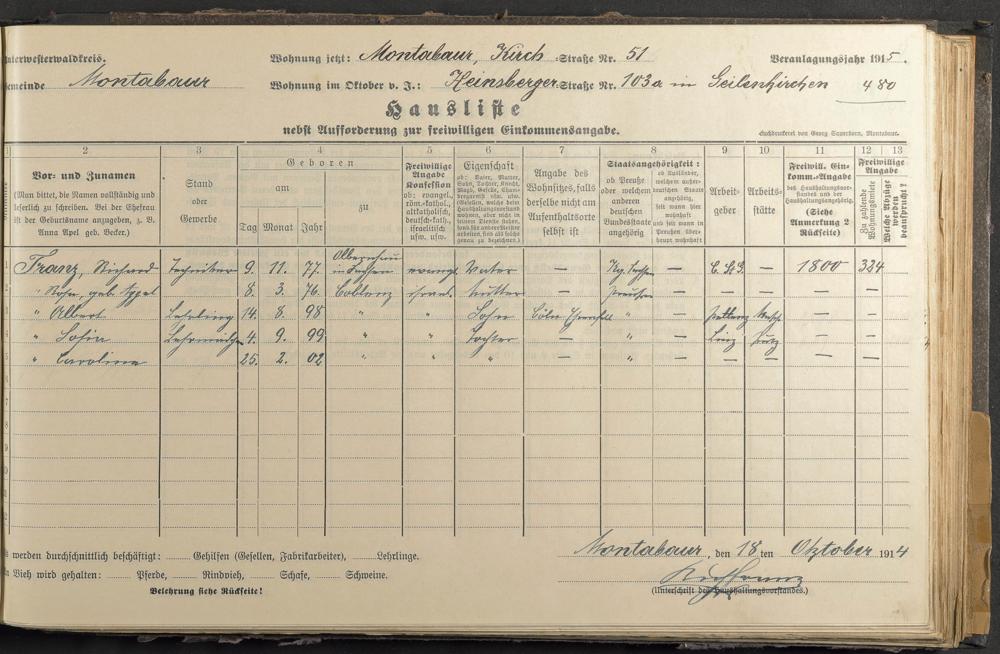 Unterwesterwaldkreis. Wohnung jetzt: Montabaur, Kirch Straße Nr. 51 Veranlagungsjahr 1915.
Gemeinde Montabaur Wohnung im Oktober v. J.: Heinsberger Straße Nr. 103a in Geilenkirchen 480
Hausliste
nebst Aufforderung zur freiwilligen Einkommensangabe.
Buchdruckerei von Georg Sauerborn, Montabaur.
2 3 4 5 6 7 8 9 10 11 12 13
Vor- und Zunamen
(Man bittet, die Namen vollständig und
leserlich zu schreiben. Bei der Ehefrau
ist der Geburtsname anzugeben, z. B.
Anna Apel geb. Becker.)
Stand
oder
Gewerbe
Geboren
am
zu
Tag Monat Jahr
Freiwillige
Angabe
Konfession
ob: evangel.
röm.-kathol.,
altkatholisch,
deutsch-kath.,
israelitisch
usw. usw.
Eigenschaft
ob: Vater, Mutter,
Sohn, Tochter, Knecht,
Magd, Geselle,
Angabe des
Wohnsitzes, falls
derselbe nicht am
Aufenthaltsorte
selbst ist
Staatsangehörigkeit:
ob Preuße
oder welchem
anderen
deutschen
Bundesstaate
angehörig
ob Ausländer,
welchem außer-
deutschen Staate
angehörig,
seit wann hier
wohnhaft
und seit wann im
Preußen über-
haupt wohnhaft
Arbeit-
geber
Arbeits-
stätte
Freiwill. Ein-
komm.-Angabe
des Haushaltungsvor-
standes und der
Haushaltungsangehörig.
(Siehe
Anmerkung 2
Rückseite)
Freiwillige
Angabe
Zu zahlende
Wohnungsmiete
Welche Abzüge
werden
beansprucht?
1 Franz, Richard Techniker 9. 11. 77. in Sachsen evang. Vater — Kg. Sachsen — — 1800 324
" Rosa, geb. Appel 8. 3. 76. Coblenz israel. Mutter — Preußen — — — — —
3 " Albert Lehrling 14. 8. 98 " " Sohn Cöln " — — —
" Sofia 4. 9. 99 " " Tochter — " — — —
" Caroline 25. 2. 02 " " " — " — — — — —
Es werden durchschnittlich beschäftigt: Gehilfen (Gesellen, Fabrikarbeiter), Lehrlinge.
An Vieh wird gehalten: Pferde, Rindvieh, Schafe, Schweine.
Belehrung siehe Rückseite!
Montabaur, den 18ten Oktober 1914
(Unterschrift des Haushaltungsvorstandes.)